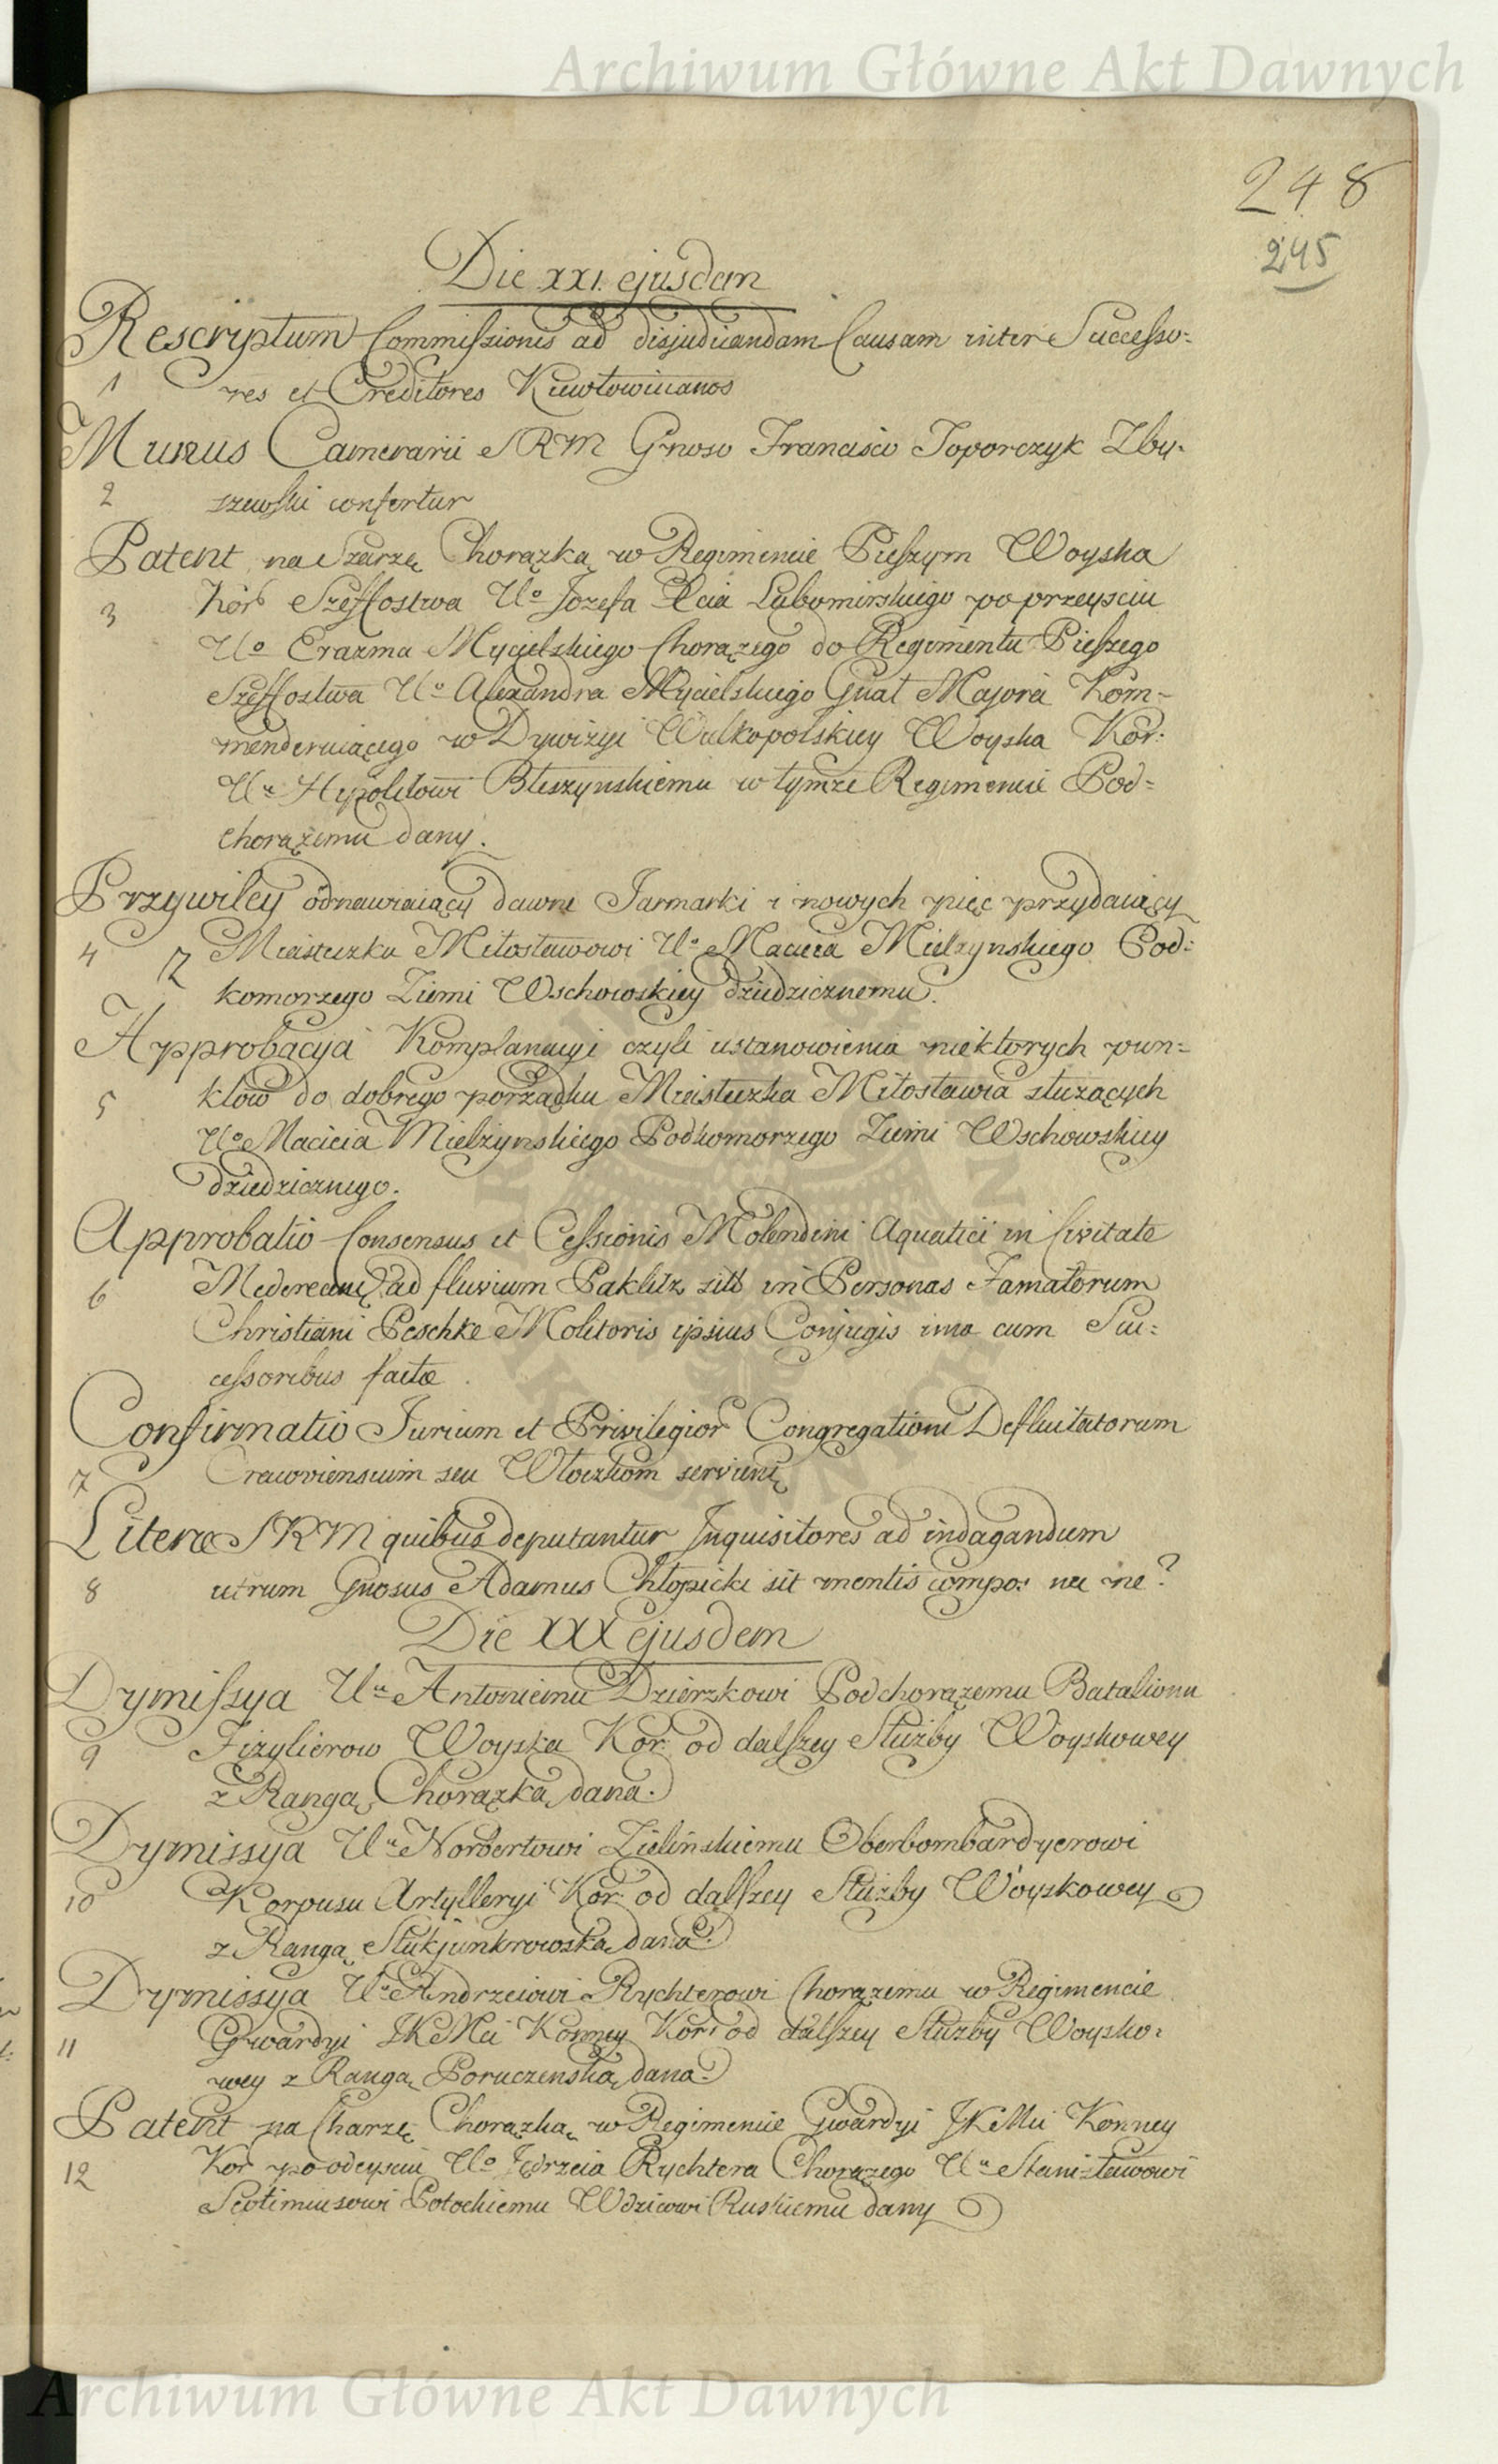 Archiwum Główne Akt Dawnych
248
245
Die XXI. ejusdem
Rescryptum Commissionis ad disjudicandam Causam inter Successo-
1 res et Creditores
Munus Camerarii SRM Gnoso Francisco Toporczyk Zby-
2 szewski confertur
Patent na Szarzę Chorązką w Regimencie Pieszym Woyska
3 Kor Szeffostwa Uo Jozefa Xcia Lubomirskiego po przeysciu
Uo Erazma Mycielskiego Chorązego do Regimentu Pieszego
Szeffostwa Uo Alexandra Mycielskiego Gnał Majora Kom-
menderuiącego w Dywizyi Wielkopolskiey Woyska Kor:
Uu Hypolitowi Bleszynskiemu w tymze Regimencie Pod-
chorązemu dany.
Przywiley odnawiaiący dawne Jarmarki i nowych pięc przydaiący
4 Miasteczku Miłosławowi Uo Macieia Mielzynskiego Pod-
komorzego Ziemi Wschowskiey dziedzicznemu.
Approbacya Komplanacyi czyli ustanowienia niektorych pun-
5 ktow do dobrego porządku Miasteczka Miłosławia słuzących
Uo Macieia Mielzynskiego Podkomorzego Ziemi Wschowskiey
dziedzicznego.
Approbatio Consensus et Cessionis Molendini Aquatici in Civitate
6 ad fluvium Paklitz siti in Personas Famatorum
Christiani Peschke Molitoris ipsius Conjugis imo cum Suc-
cessoribus factæ.
Confirmatio Jurium et Privilegior Congregationi Defluitatorum
7 Cracoviensium seu Włoczkom
Literæ SRM quibus deputantur Inquisitores ad indagandum
8 utrum Gnosus Adamus Chłopicki sit mentis compos nec ne?
Die XXX ejusdem
Dymissya Uu Antoniemu Dzierzkowi Podchorązemu Batalionu
9 Fizylierow Woyska Kor: od dalszey Słuzby Woyskowey
z Rangą Chorązką dana.
Dymissya Uu Norbertowi Zielinskiemu Oberbombardyerowi
10 Korpusu Artylleryi Kor: od dalszey Słuzby Woyskowey
z Rangą Sztukjunkrowską dana.
Dymissya Uu Andrzeiowi Rychterowi Chorązemu w Regimencie
11 Gwardyi JKMci Konney Kor: od dalszey Słuzby Woysko-
wey z Rangą Poruczenską dana.
Patent na Charzę Chorązką w Regimencie Gwardyi JKMci Konney
12 Kor po odeysciu Uo Jędrzeia Rychtera Chorązego Uu Stanisławowi
Septimiusowi Potockiemu Wdzicowi Ruskiemu dany
Archiwum Główne Akt Dawnych